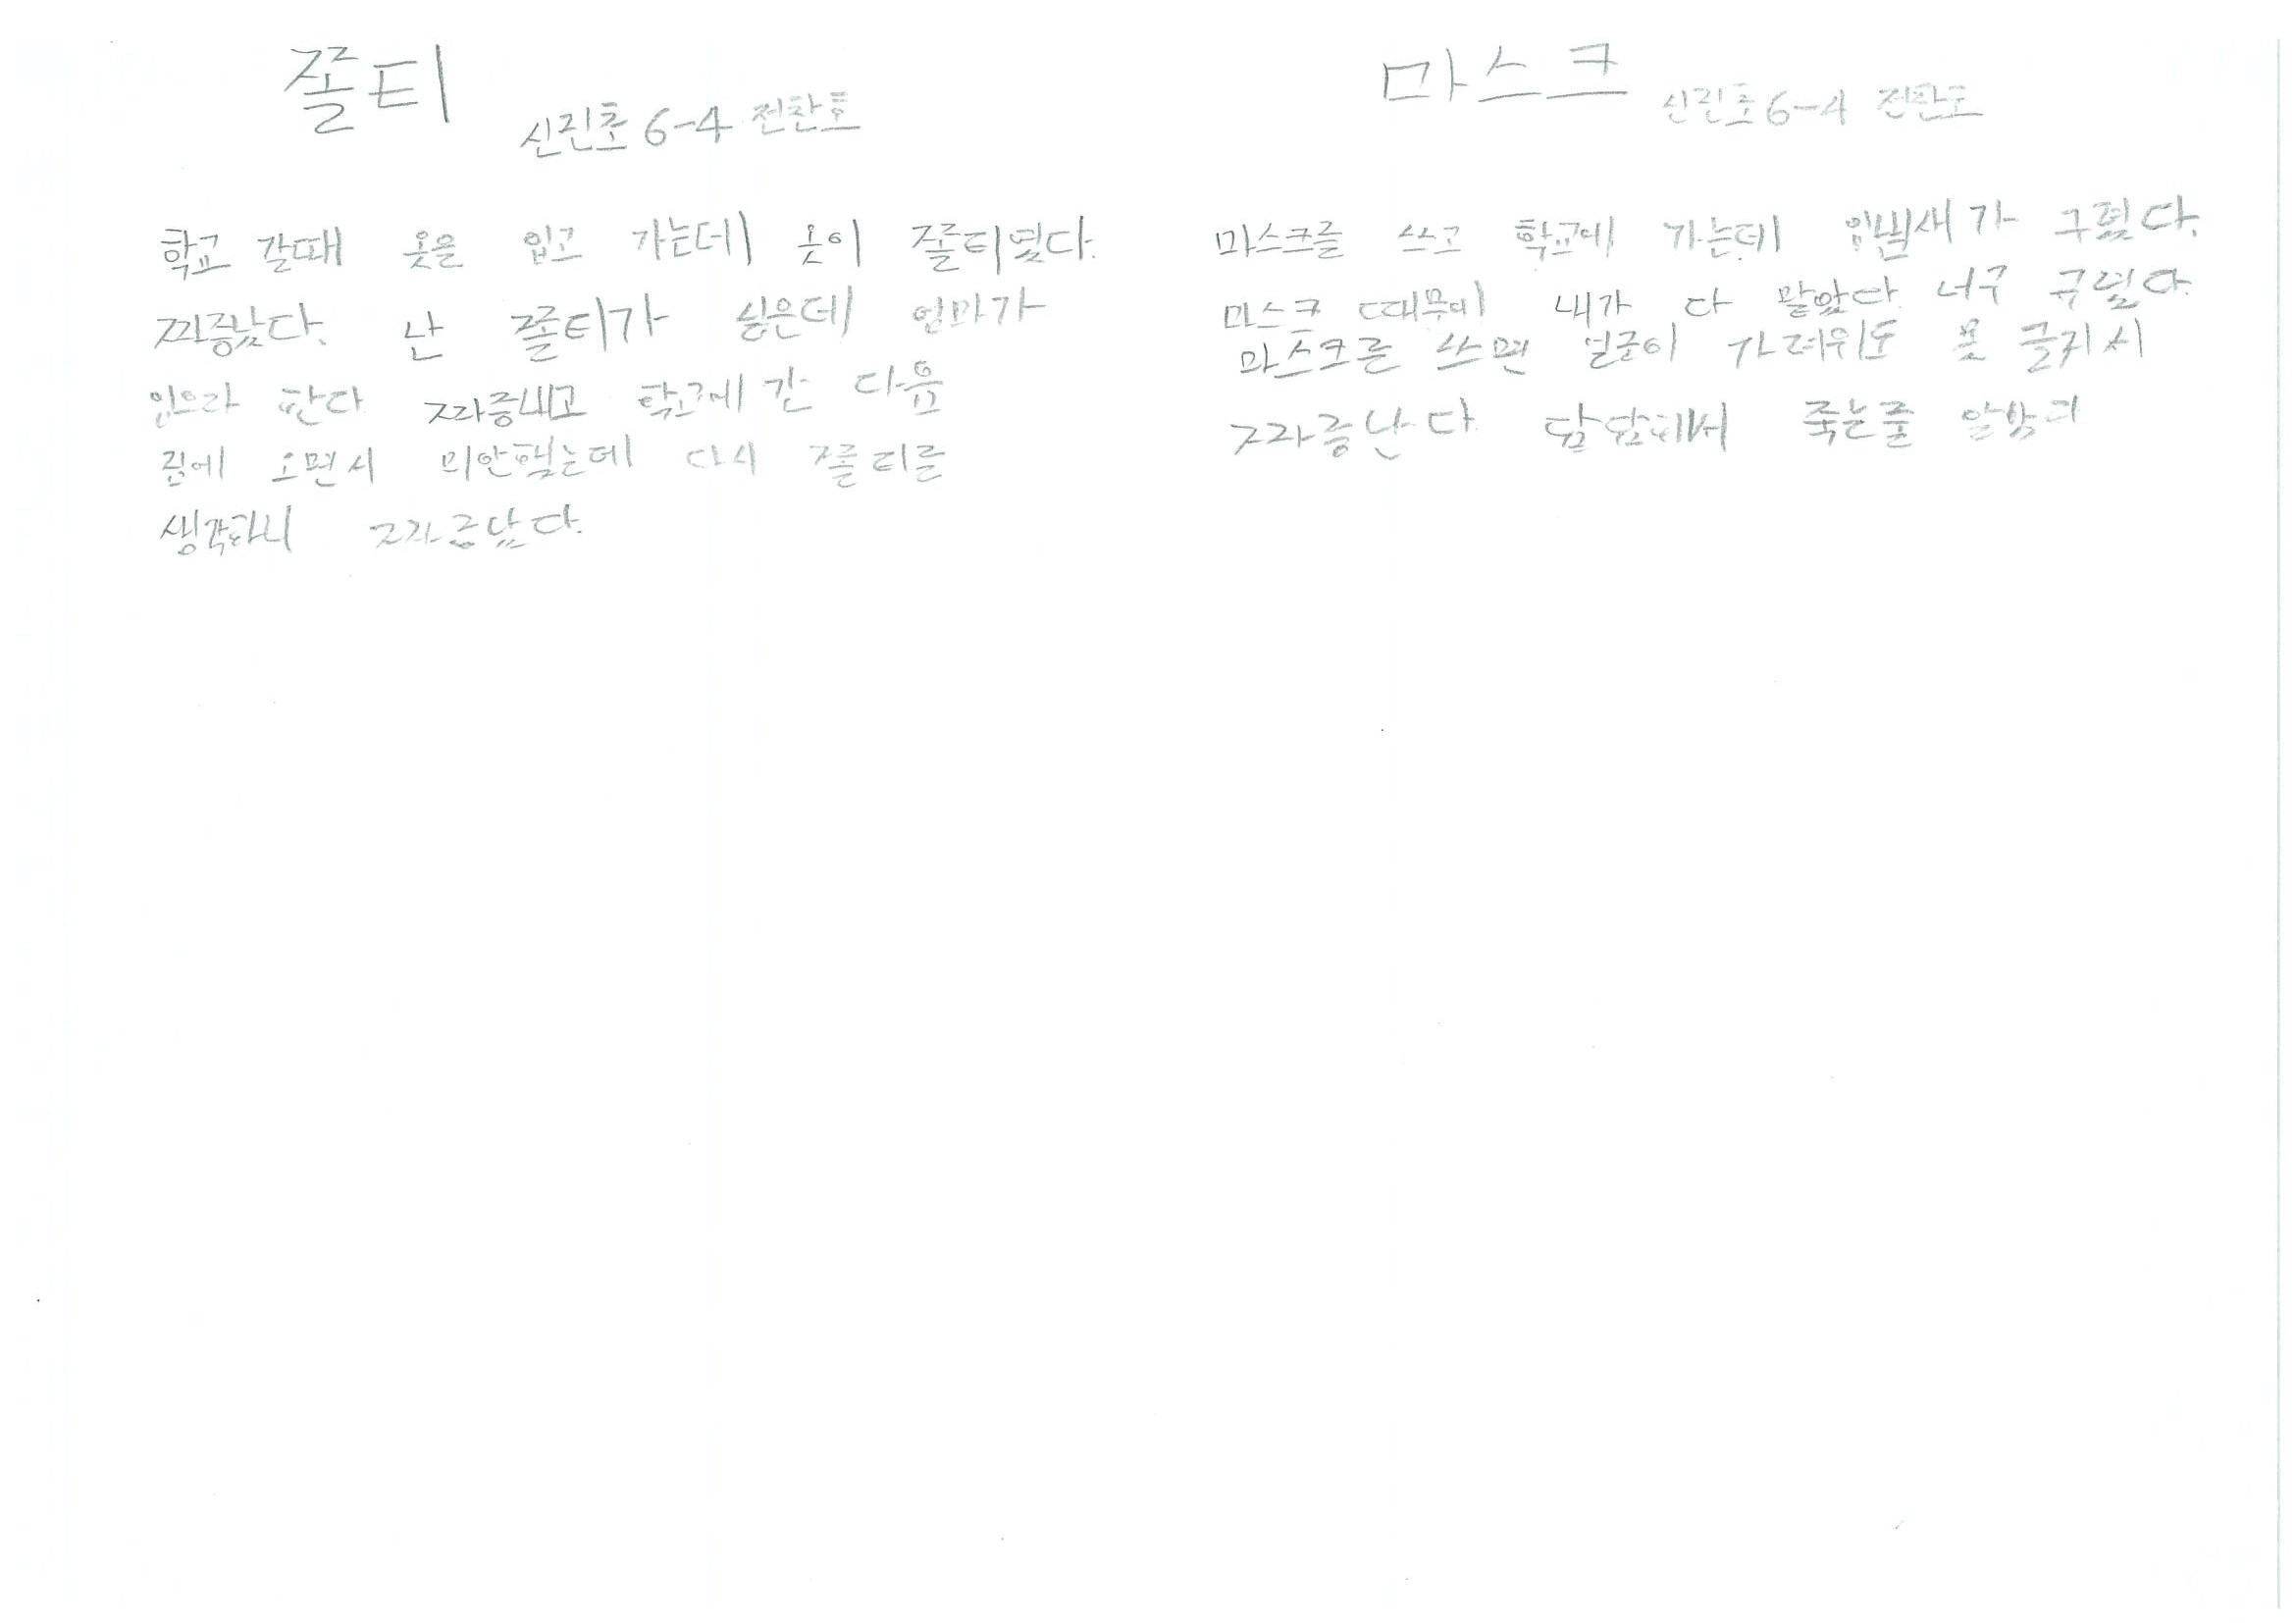 쫄티
신진초 6-4 전찬호
학교 갈때 옷을 입고 가는데 옷이 쫄티였다.
짜증났다. 난 쫄티가 싫은데 엄마가
입으라 한다 짜증내고 학교에 간 다음
집에 오면서 미안했는데 다시 쫄티를
생각하니 짜증났다.
마스크
신진초 6-4 전찬호
마스크를 쓰고 학교에 가는데 가 구렸다.
마스크 때무네 내가 다 맡았다 너무 구렸다.
마스크를 쓰면 얼굴이 가려워도 못 긁키서
짜증난다 답답해서 죽는줄